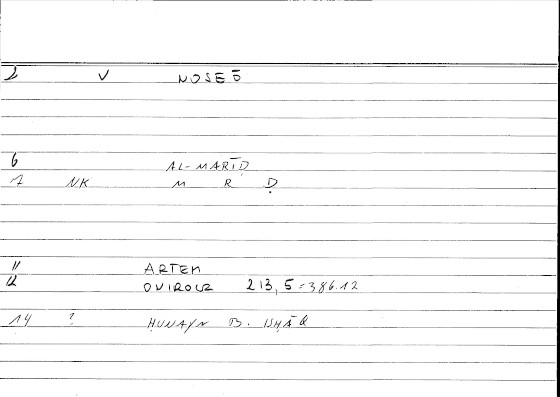 2 V NOSEŌ
6 AL-MARĪḌ
7 NK M R Ḍ
11 ARTEM
12 OVIROLZ 213,5=386.12
14 ? ḤUNAYN B. ISḤĀQ